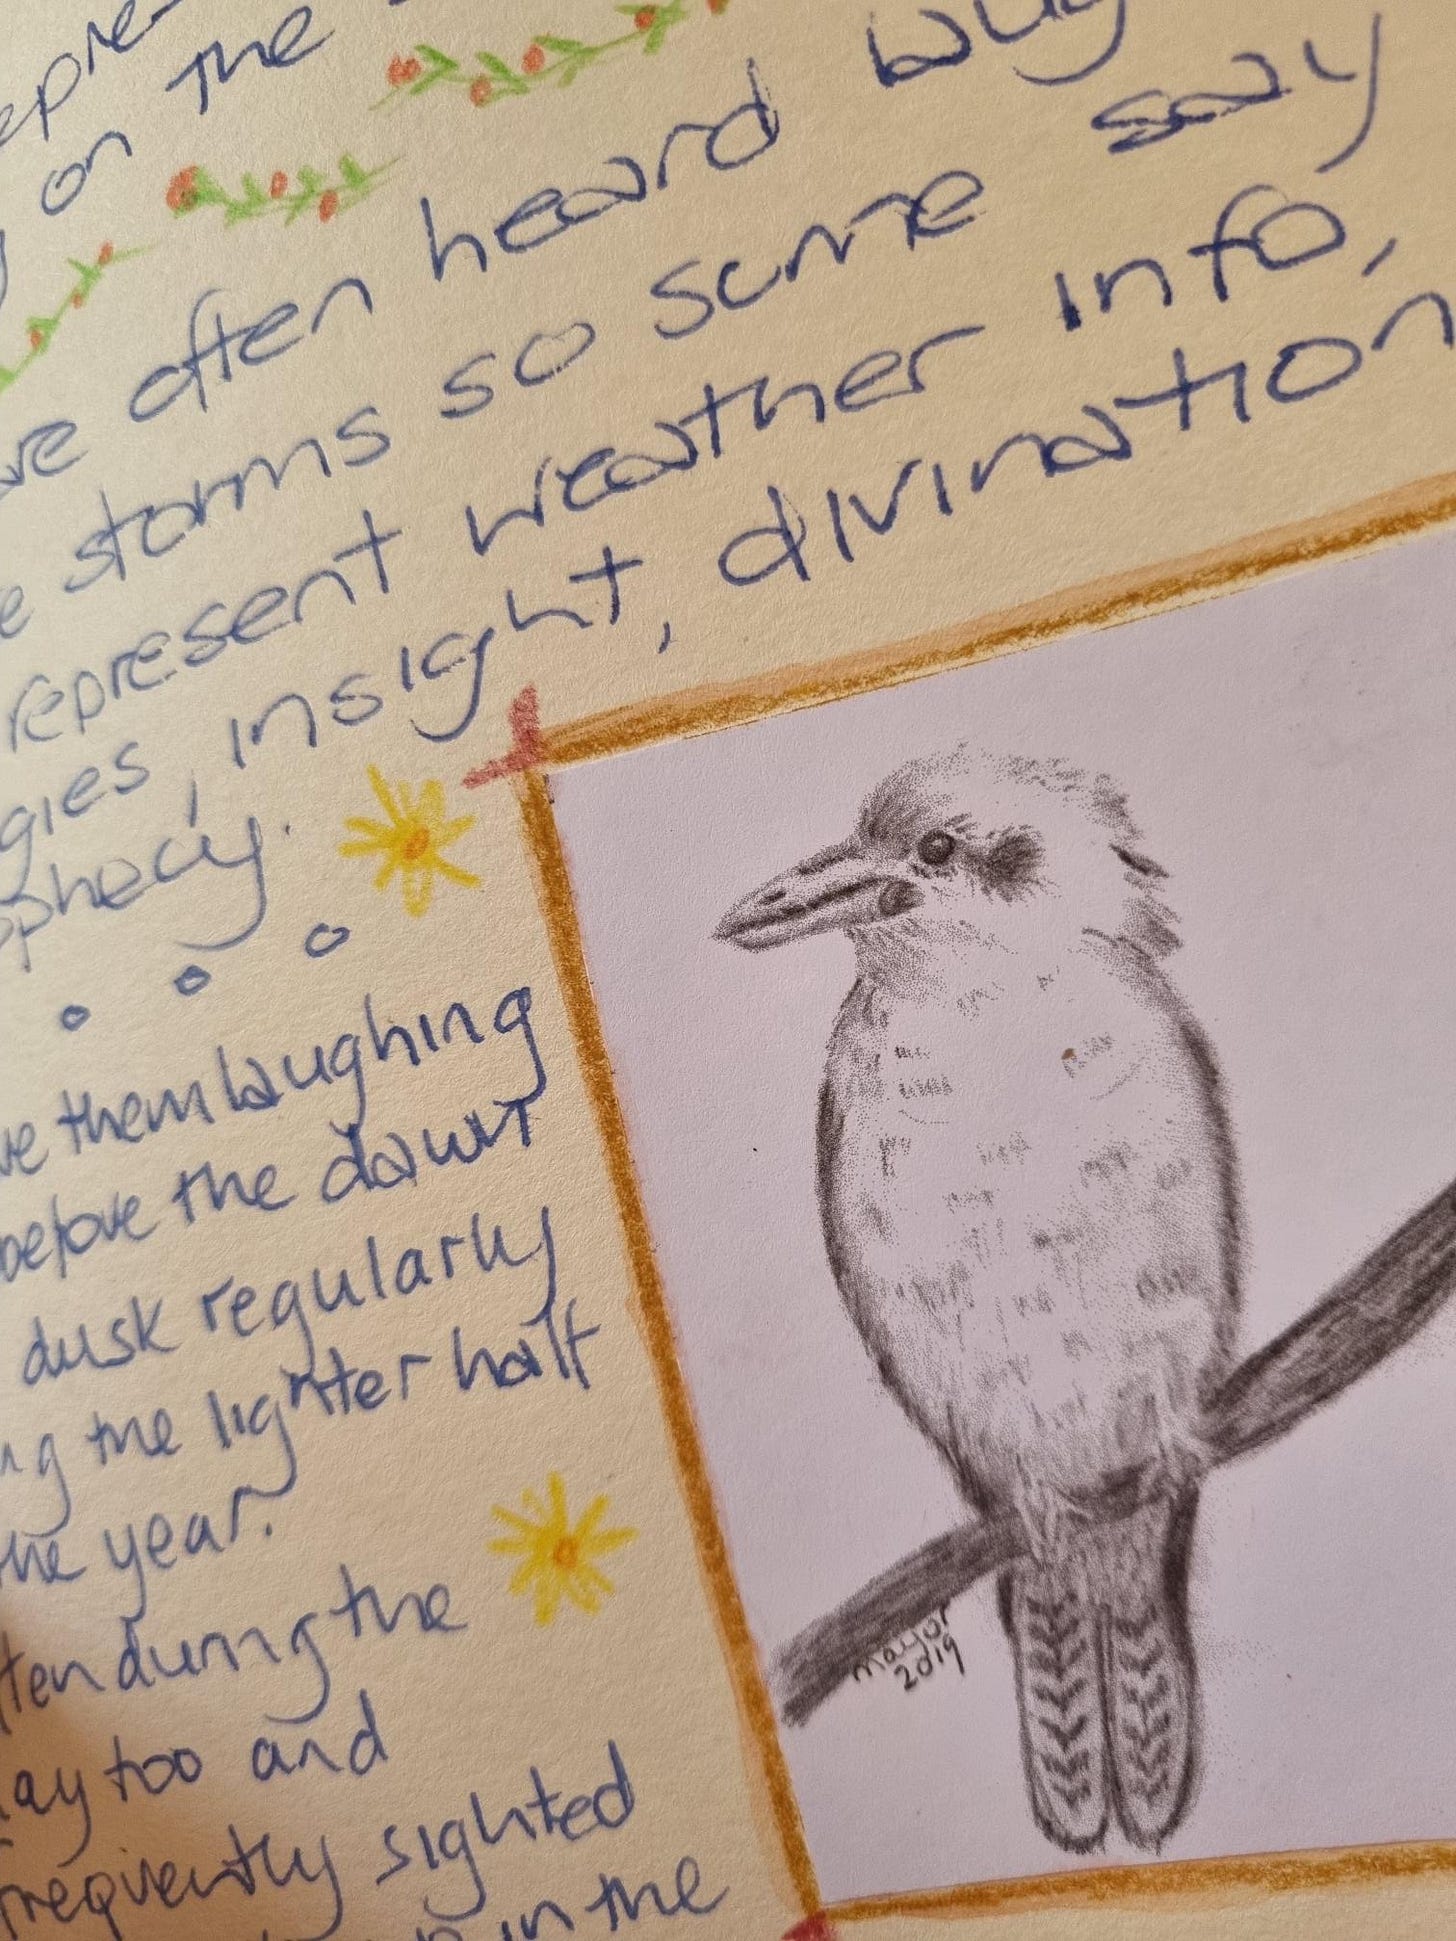 on the
are often heard laug
storms so some say
represent weather info,
gies, insight, divination
phecy.
ve them laughing
before the dawn
dusk regularly
ng the lighter half
the year.
ten during the
ay too and
frequently sighted
in the
mayor
2019